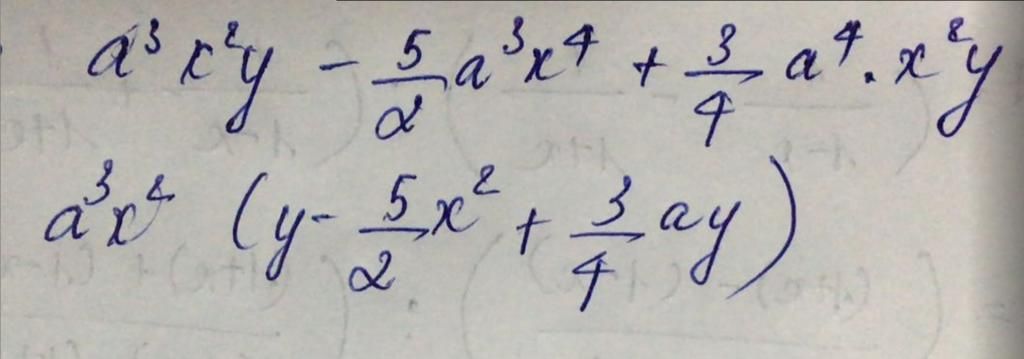 a³x²y - 5/2 a³x⁴ + 3/4 a⁴ · x²y
a³x² (y - 5/2 x² + 3/4 ay)